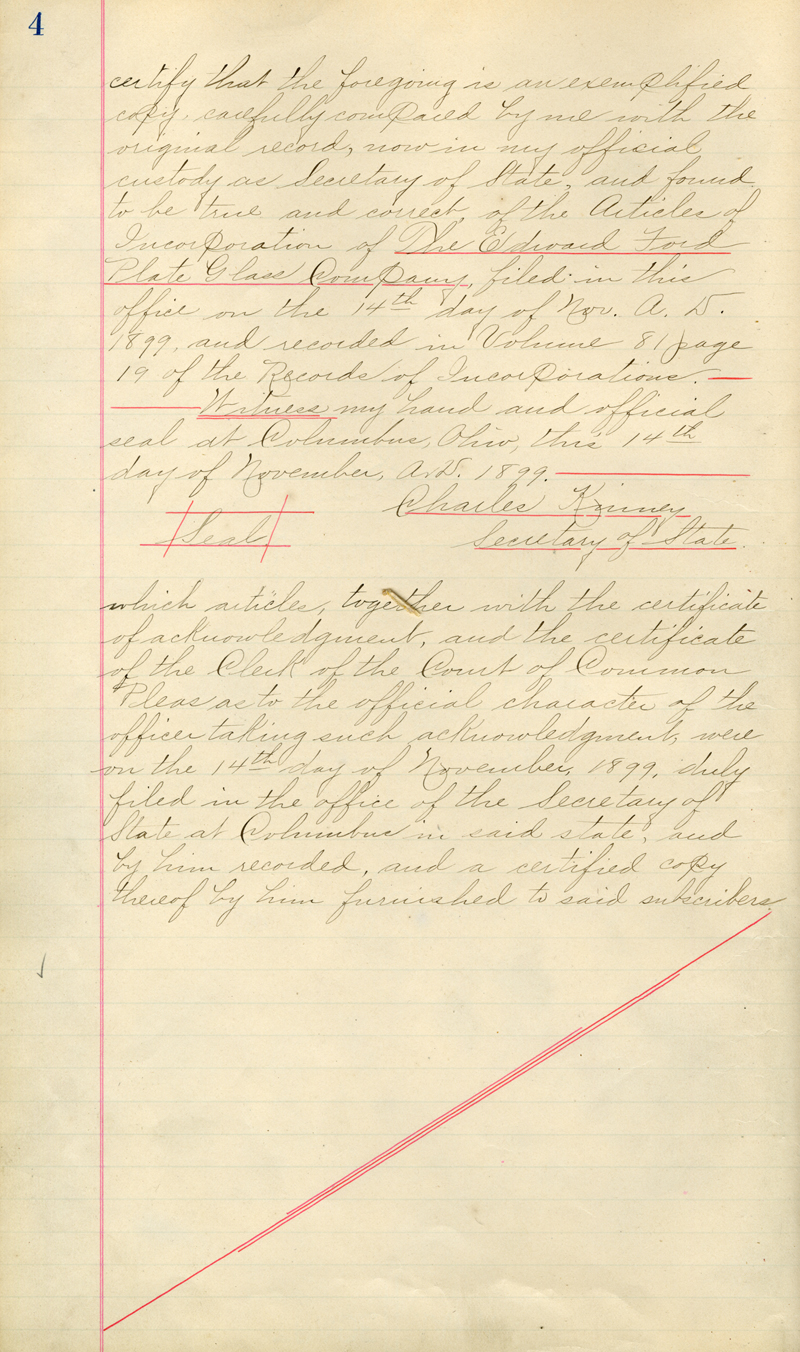 4
certify that the foregoing is an exemplified
copy, carefully compared by me with the
original record, now in my official
custody as Secretary of State, and found
to be true and correct, of the Articles of
Incorporation of The Edward Ford
Plate Glass Company, filed in this
office on the 14th day of Nov. A. D.
1899, and recorded in Volume 81 page
19 of the Records of Incorporations.
Witness my hand and official
seal at Columbus, Ohio, this 14th
day of November, A.D. 1899.
Charles Kinney
Seal Secretary of State.
which articles, together with the certificate
of acknowledgment, and the certificate
of the Clerk of the Court of Common
Pleas as to the official character of the
officer taking such acknowledgment, were
on the 14th day of November, 1899, duly
filed in the office of the Secretary of
State at Columbus in said state, and
by him recorded, and a certified copy
thereof by him furnished to said subscribers.